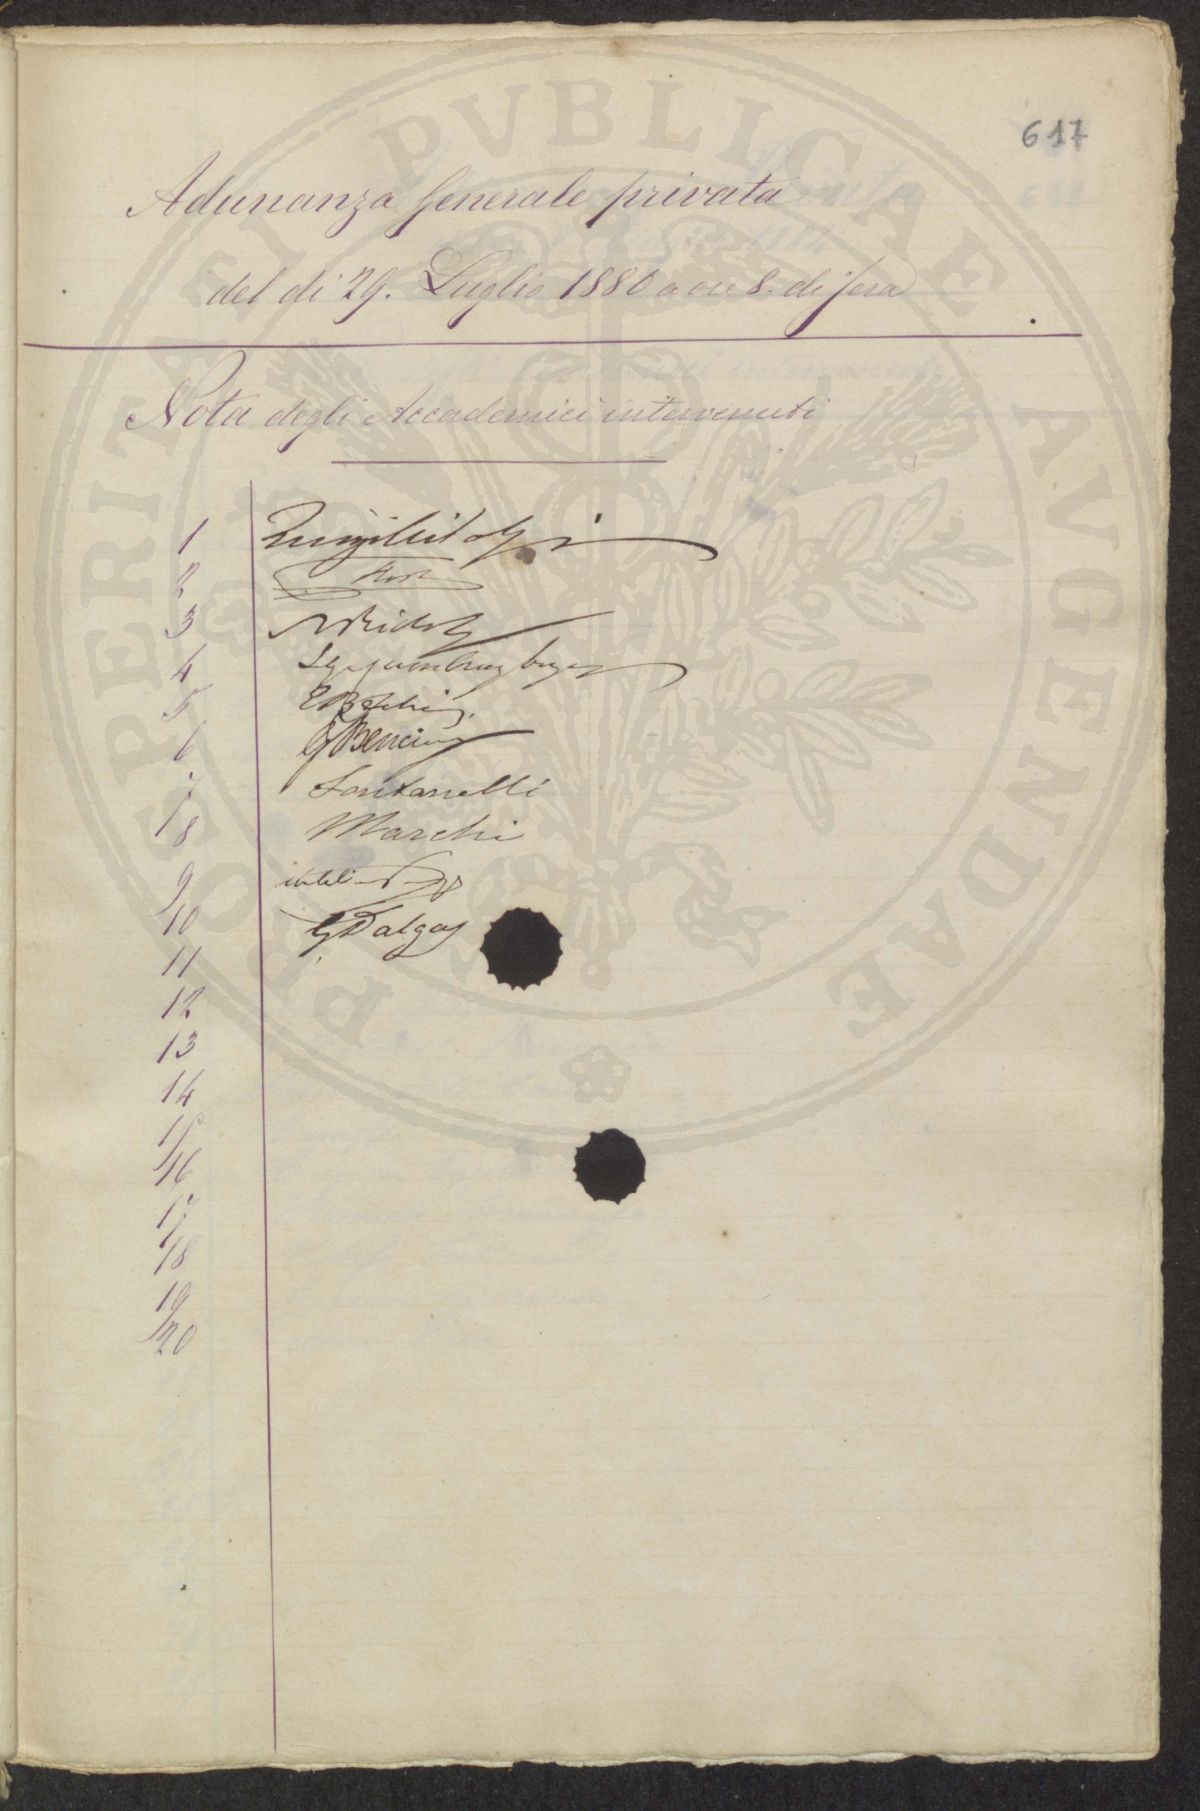 617
Adunanza Generale privata
del di 29. Luglio 1880 a ore 8. di sera
Nota degli Accademici intervenuti
1
2
3
4
5
6 G Bencini
7 Fontanelli
8 Marchi
9
10 G Dalgas
11
12
13
14
15
16
17
18
19
20
PROSPERITATI PVBLICAE AVGENDAE